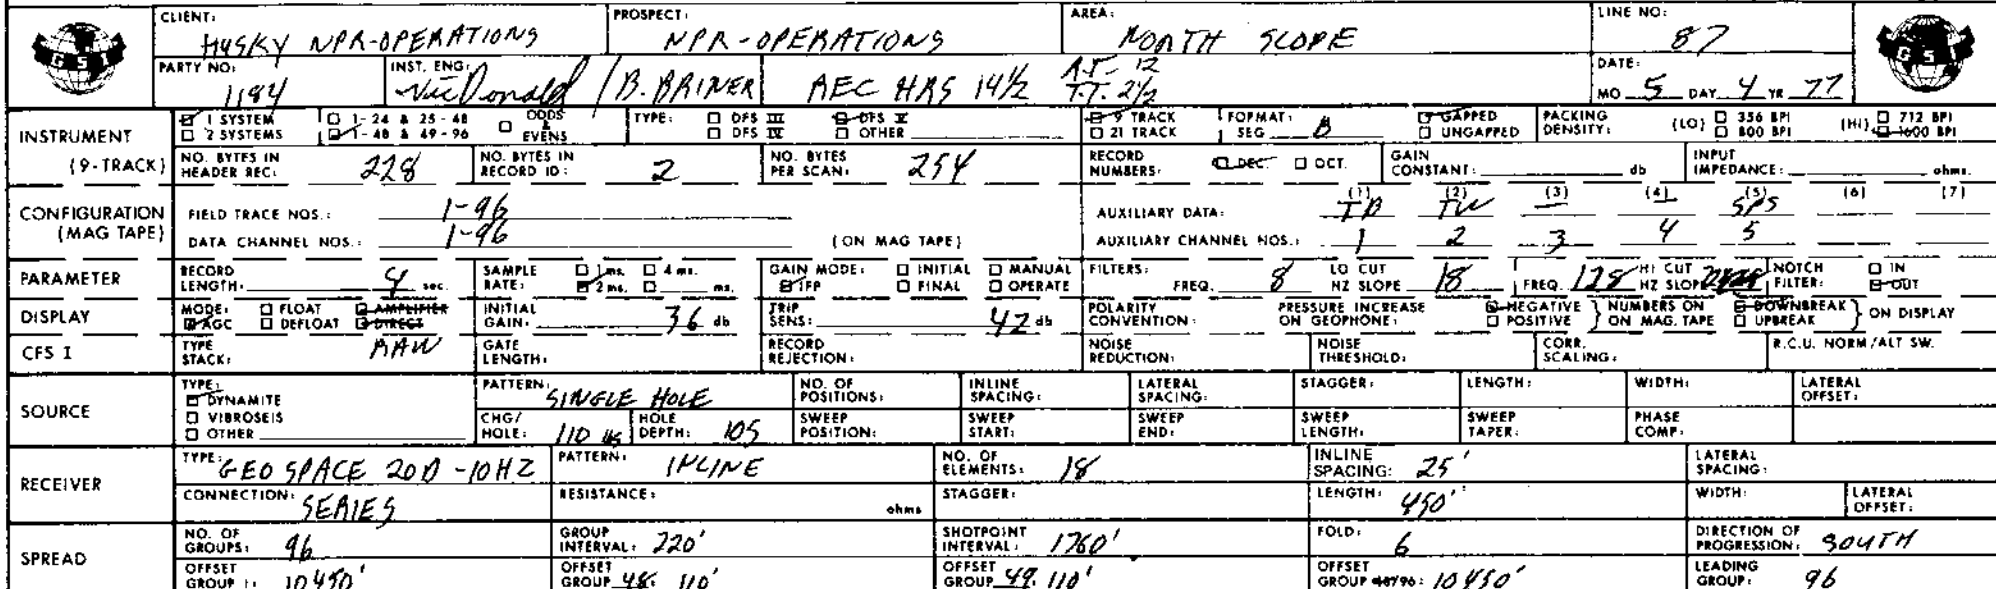 CLIENT: HUSKY NPR-OPERATIONS PROSPECT: NPR-OPERATIONS AREA: NORTH SLOPE LINE NO: 87
GSI GSI
PARTY NO: 1184 INST. ENG: Vic Donald / B. BRINER REC HRS 14½ R.T- 12 T.T. 2½ DATE: MO 5 DAY 4 YR 77
INSTRUMENT (9-TRACK) 1 SYSTEM 1-24 & 25-48 ODDS & EVENS TYPE: DFS III DFS V 9 TRACK FORMAT: SEG B GAPPED PACKING DENSITY: (LO) 356 BPI (HI) 712 BPI
2 SYSTEMS 1-48 & 49-96 DFS IV OTHER 21 TRACK UNGAPPED 800 BPI 1600 BPI
NO. BYTES IN HEADER REC: 228 NO. BYTES IN RECORD ID: 2 NO. BYTES PER SCAN: 254 RECORD NUMBERS: DEC. OCT. GAIN CONSTANT: db INPUT IMPEDANCE: ohms.
CONFIGURATION (MAG TAPE) FIELD TRACE NOS.: 1-96 AUXILIARY DATA: (1) TB (2) TW (3) — (4) — (5) SPS (6) (7)
DATA CHANNEL NOS.: 1-96 (ON MAG TAPE) AUXILIARY CHANNEL NOS.: 1 2 3 4 5
PARAMETER RECORD LENGTH: 4 sec. SAMPLE RATE: 1 ms. 4 ms. 2 ms. ms. GAIN MODE: INITIAL MANUAL IFP FINAL OPERATE FILTERS: FREQ. 8 LO CUT HZ SLOPE 18 FREQ. 128 HI CUT HZ SLOPE NOTCH FILTER: IN OUT
DISPLAY MODE: FLOAT AMPLIFIER AGC DEFLOAT DIRECT INITIAL GAIN: 36 db TRIP SENS: 42 db POLARITY CONVENTION: PRESSURE INCREASE ON GEOPHONE: NEGATIVE POSITIVE } NUMBERS ON ON MAG. TAPE DOWNBREAK UPBREAK } ON DISPLAY
CFS I TYPE STACK: RAW GATE LENGTH: RECORD REJECTION: NOISE REDUCTION: NOISE THRESHOLD: CORR. SCALING: R.C.U. NORM/ALT SW.
SOURCE TYPE: DYNAMITE VIBROSEIS OTHER PATTERN: SINGLE HOLE NO. OF POSITIONS: INLINE SPACING: LATERAL SPACING: STAGGER: LENGTH: WIDTH: LATERAL OFFSET:
CHG/HOLE: 110 lbs HOLE DEPTH: 105 SWEEP POSITION: SWEEP START: SWEEP END: SWEEP LENGTH: SWEEP TAPER: PHASE COMP:
RECEIVER TYPE: GEO SPACE 20D -10HZ PATTERN: INLINE NO. OF ELEMENTS: 18 INLINE SPACING: 25' LATERAL SPACING:
CONNECTION: SERIES RESISTANCE: ohms STAGGER: LENGTH: 450' WIDTH: LATERAL OFFSET:
SPREAD NO. OF GROUPS: 96 GROUP INTERVAL: 220' SHOTPOINT INTERVAL: 1760' FOLD: 6 DIRECTION OF PROGRESSION: SOUTH
OFFSET GROUP 1: 10450' OFFSET GROUP 48: 110' OFFSET GROUP 49: 110' OFFSET GROUP 48/96: 10450' LEADING GROUP: 96